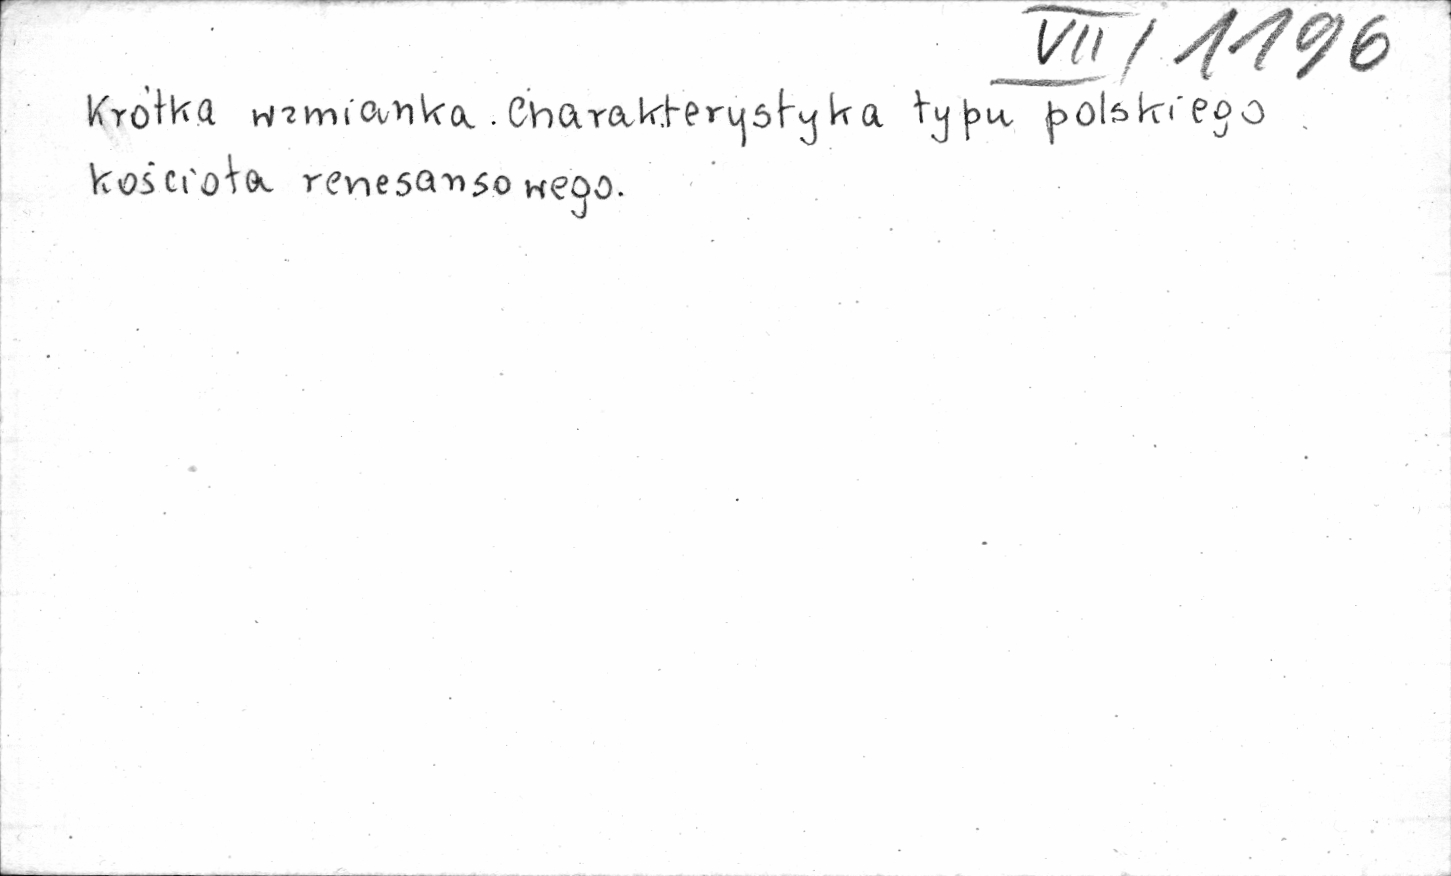 VII/1196
Krótka wzmianka. Charakterystyka typu polskiego
kościoła renesansowego.